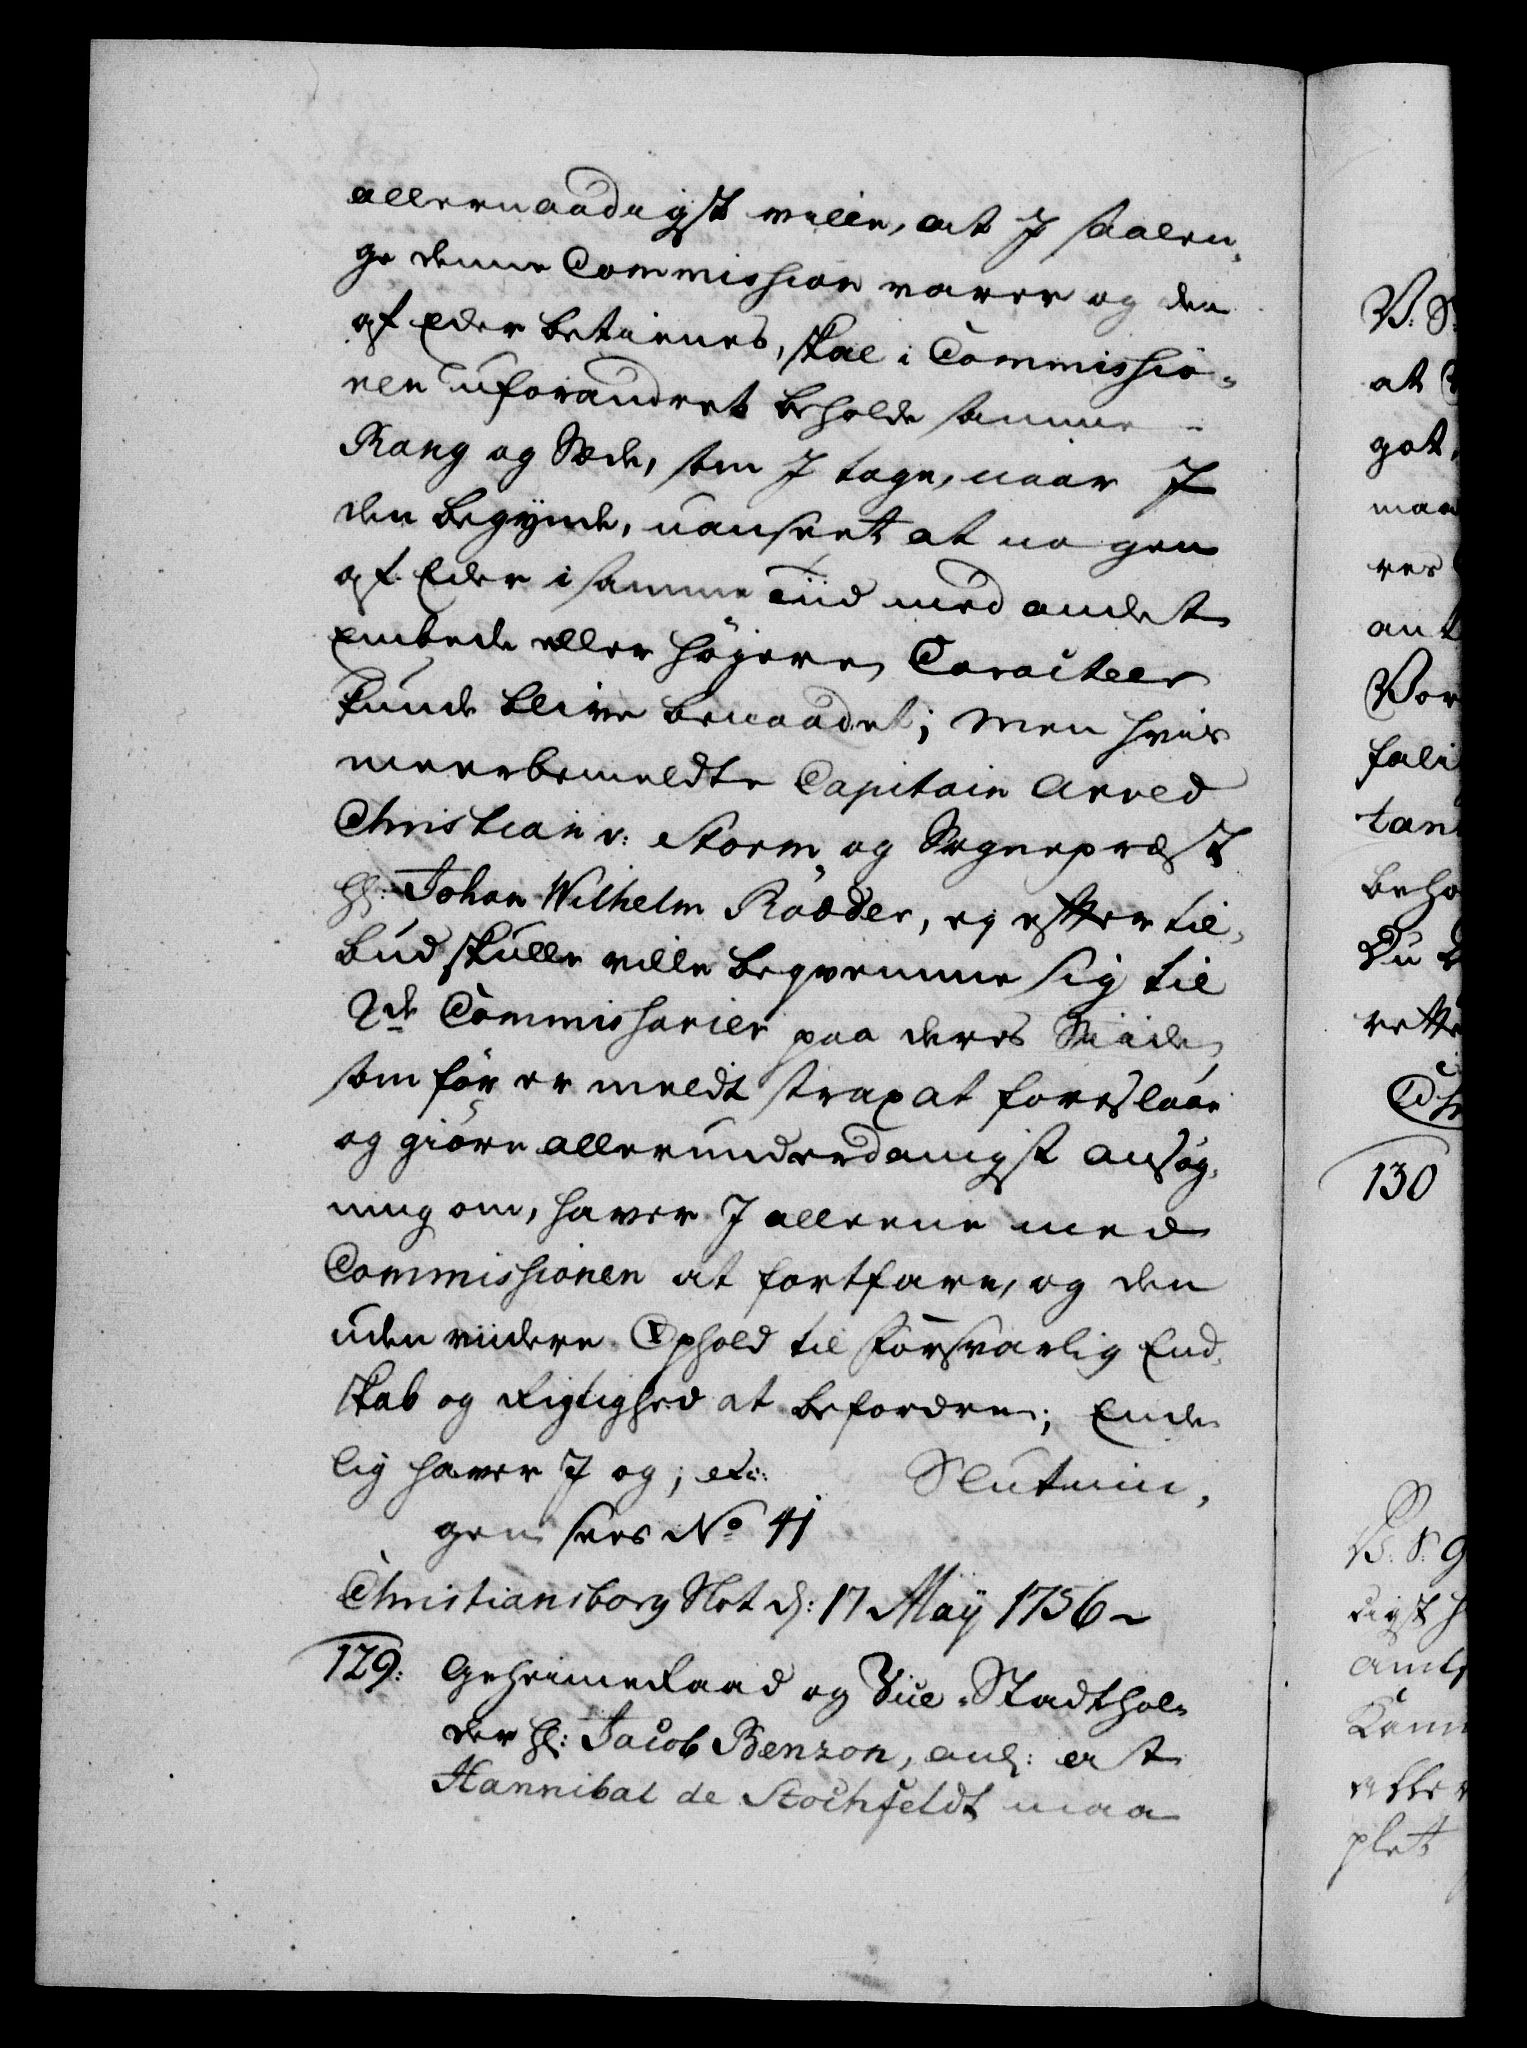 allernaadigst ville, at I saalen-
ge denne Commission varer og den
af Eder betienes, skal i Commissio-
nen uforandret beholde samme
Rang og Sæde, som I toge, naar I
den begynde, uanseet at nogen
af Eder i samme Tiid med andet
Embede eller høyere Caracteer
kunde blive benaadet; men hvis
meerbemeldte Capitain Arved
Christian v: Storm og Sognepræst
Hr: Johan Wilhelm Röader, ej efter til-
bud skulle ville beqvemme sig til
2de Commissarier paa deres Siide,
som før er meldt strax at foreslaae
og giøre allerunderdanigst Ansøg-
ning om, haver I alleene med
Commissionen at fortfare, og den
uden viidere Ophold til forsvarlig End-
skab og Rigtighed at befordre; Ende-
lig haver I og; etc: Slutnin-
gen sees No 41
Christiansborg Slot d: 17 Maÿ 1756
129: Geheimeraad og Vice-Stadthol-
der Hr: Jacob Benzon, anl: at
Hannibal de Stochfeldt maa
V: S:
at
got
maa
res
ant
Vor
fali
tan
beho
Du
rette
Ch
130
V: S: G
digst h
amts
Kam
efter
plet